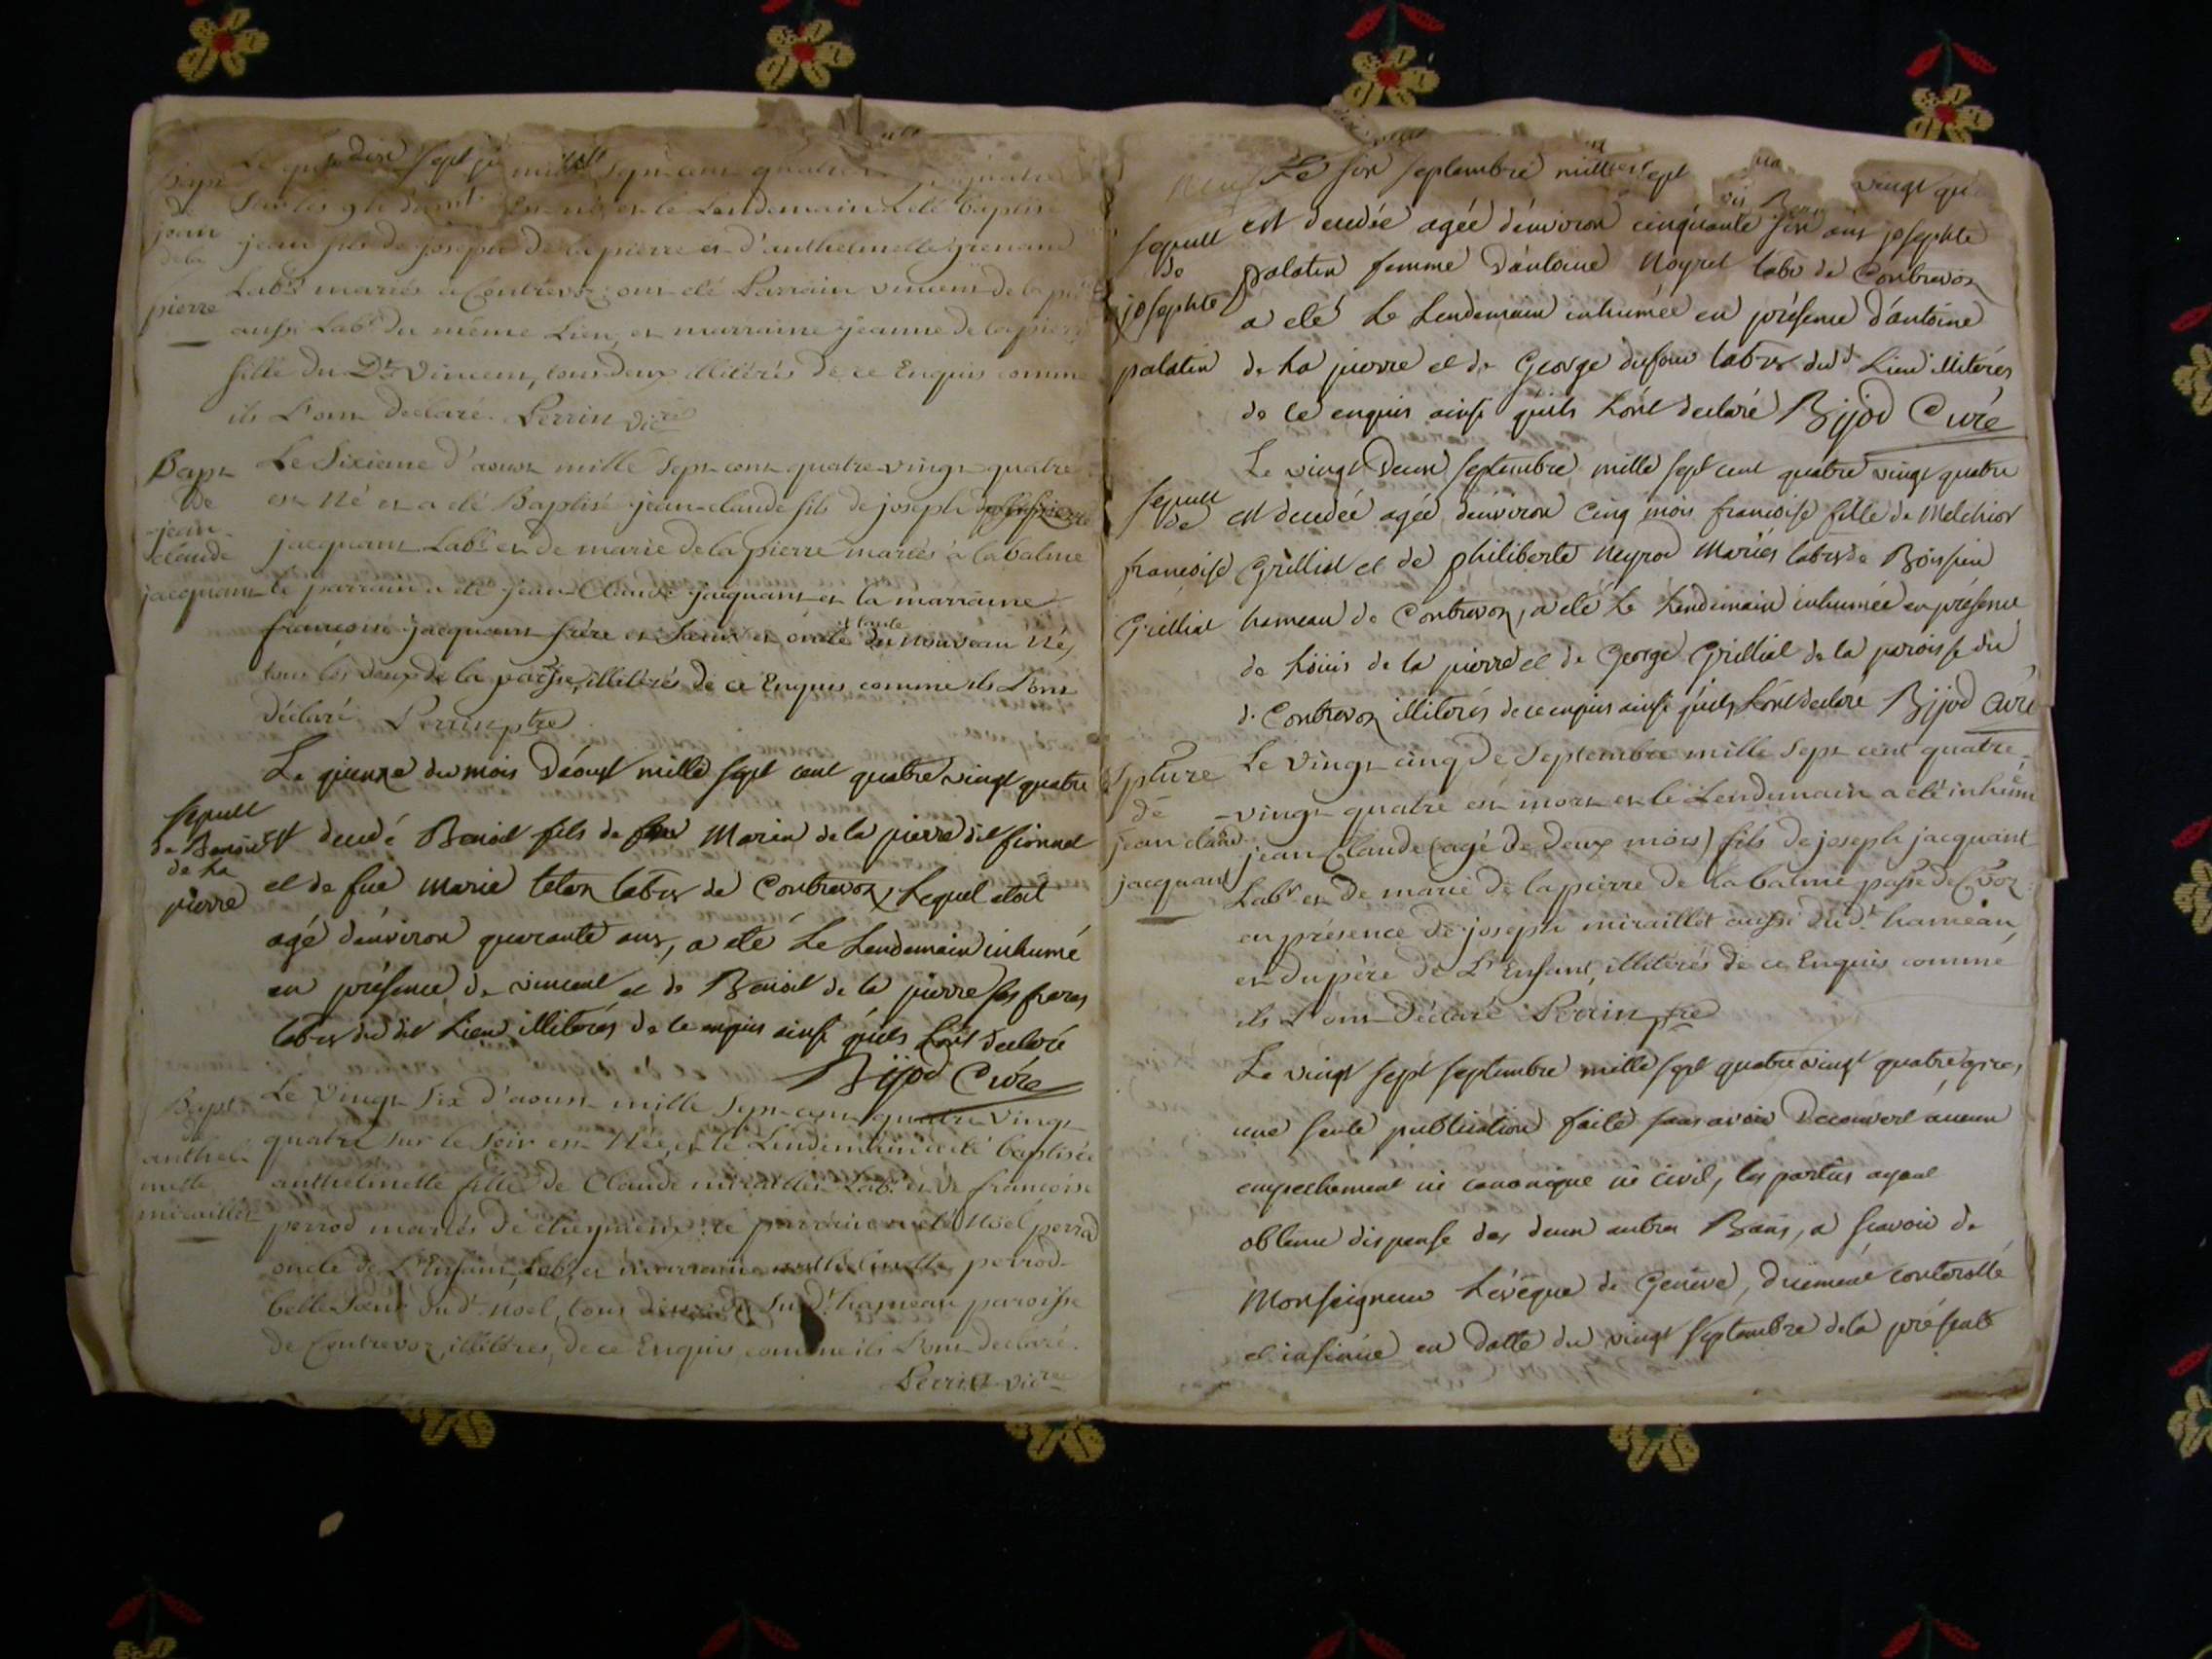 Bapt
de
jean
de la
pierre
mille sept cent quatre
est né et le Lendemain a été baptisé
jean fils de joseph de la pierre et d'anthelmette grenand
Labrs mariés a Contrevoz; ont été Parrain vincent de la pierre
aussi Labr du même Lieu, et marraine jeanne de la pierre
fille du Dt vincent, tous deux illitérés de ce Enquis comme
ils L'ont declaré. Perrin vicre
Bapt
de
jean-
claude
jacquant
Le Sixieme d'aoust mille sept cent quatre-vingt quatre
est Né et a été Baptisé jean-claude fils de joseph
jacquant Labr et de marie de la pierre mariés à la balme
le parrain a été jean-Claude jacquant et la marraine
francoise jacquant frère et soeur et oncle et tante du nouveau Né,
tous les deux de la passe, illitérés de ce Enquis comme ils L'ont
déclaré. Perrin ptre
Sepult
de Benoit
de La
pierre
Le quinze du mois d'aoust mille sept cent quatre vingt quatre
est decedé Benoit fils de feu Marin de la pierre dit fionnet
et de fue Marie telon labrs de Contrevoz, Lequel etoit
agé d'environ quarante ans, a eté Le Lendemain inhumé
en présence de vincent et de Benoit de la pierre ses freres
labrs du dit Lieu illiterés de ce enquis ainsi qu'ils L'ont declaré
Bijod Curé
Bapt
de
anthel-
mette
miraillet
Le vingt six d'aoust mille sept cent quatre vingt
quatre sur le soir est Née, et le Lendemain a été baptisée
anthelmette fille de Claude miraillet Labr et de francoise
perrod mariés de cheymieux: le parrain a été Noël perrod
oncle de L'Enfant, Labr, et marraine anthelmette perrod
belle soeur dudt Noël, tous deux du sudt hameau paroisse
de Contrevoz, illitérés, de ce Enquis comme ils L'ont declaré.
Perrin vicre
Le six septembre mille sept vingt
Sepult
de
josephte
palatin
est decedée agée d'environ cinquante six ans josephte
palatin femme d'antoine Neyret labr de Contrevoz
a eté Le Lendemain inhumée en présence d'antoine
de La pierre et de George dufour labrs dudt Lieu illiterés
de ce enquis ainsi qu'ils L'ont declaré Bijod Curé
Sepult
de
francoise
Grilliet
Le vingt deux septembre mille sept cent quatre vingt quatre
est decedée agée d'environ Cinq mois francoise fille de Melchior
Grilliet et de philiberte Neyrod Mariés labrs de Boissieu
hameau de Contrevoz, a eté Le Lendemain inhumée en présence
de Louis de la pierre et de George Grilliet de la paroisse du
d. Contrevoz illiterés de ce enquis ainsi qu'ils L'ont declaré Bijod Curé
Spture
de
jean claude
jacquant
Le vingt-cinq de Septembre mille sept cent quatre-
-vingt quatre est mort et le Lendemain a été inhumé
jean Claude (agé de deux mois) fils de joseph jacquant
Labr et de marie de la pierre de la balme passe de C'voz
en présence de joseph miraillet aussi dudt hameau
et du père de L'Enfant, illitérés de ce Enquis comme
ils L'ont déclaré Perrin ptre
Le vingt sept septembre mille sept quatre vingt quatre après
une seule publication faite sans avoir decouvert aucun
empechement ni canonique ni civil, les parties ayant
obtenu dispense des deux autres Bans, a scavoir de
Monseigneur L'évêque de Genève, duement controllé
et insinué en datte du vingt septembre de la présente